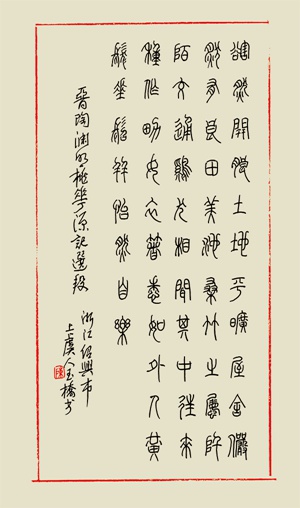 豁然開朗土地平曠屋舍儼
然有良田美池桑竹之屬阡
陌交通雞犬相聞其中往來
種作男女衣著悉如外人黃
髮垂髫並怡然自樂
晉陶淵明桃華源記選段
浙江紹興市
上虞人玉橋书